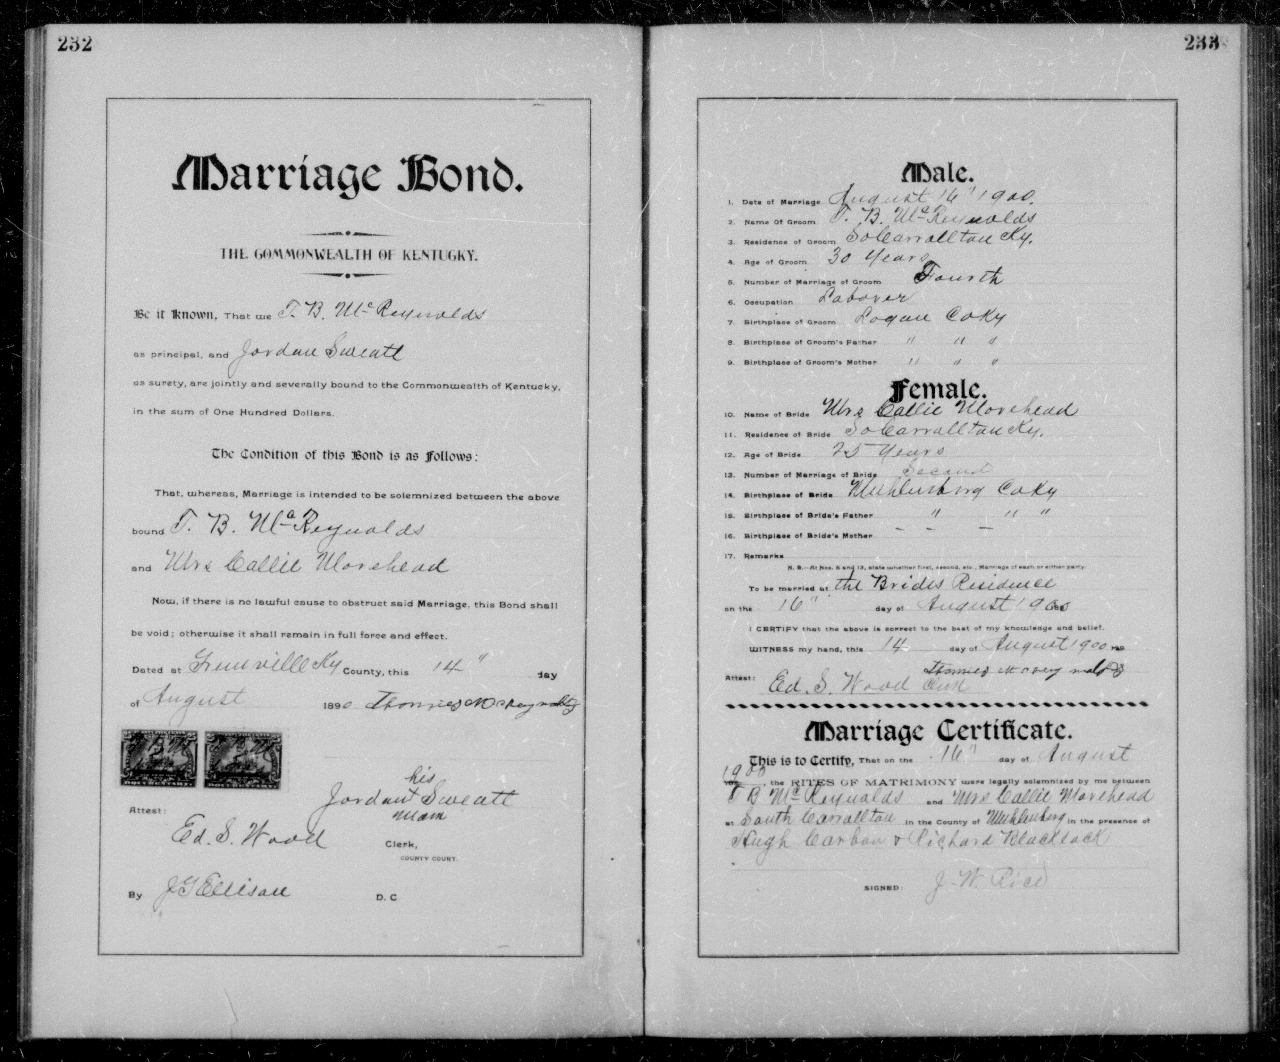 232
Marriage Bond.
THE COMMONWEALTH OF KENTUCKY.
Be it Known, That we T. B. McReynolds
as principal, and Jordan Sweatt
as surety, are jointly and severally bound to the Commonwealth of Kentucky,
in the sum of One Hundred Dollars.
The Condition of this Bond is as Follows:
That, whereas, Marriage is intended to be solemnized between the above
bound T. B. McReynolds
and Mrs Callie Morehead
Now, if there is no lawful cause to obstruct said Marriage, this Bond shall
be void; otherwise it shall remain in full force and effect.
Dated at Greenville Ky County, this 14" day
of August 1890 Thomas McReynolds
his
Jordan + Sweatt
Mark
Attest:
Ed. S. Wood Clerk,
COUNTY COURT.
By J G Ellison D. C
233
Male.
1. Date of Marriage August 16" 1900.
2. Name Of Groom T. B. McReynolds
3. Residence of Groom So Carrallton Ky.
4. Age of Groom 30 Years
5. Number of Marriage of Groom Fourth
6. Occupation Laborer
7. Birthplace of Groom Logan Co Ky
8. Birthplace of Groom's Father " " "
9. Birthplace of Groom's Mother " " "
Female.
10. Name of Bride Mrs Callie Morehead
11. Residence of Bride So Carrallton Ky.
12. Age of Bride 25 Years
13. Number of Marriage of Bride Second
14. Birthplace of Bride Muhlenberg Co Ky
15. Birthplace of Bride's Father " " "
16. Birthplace of Bride's Mother
17. Remarks
N. B.—At Nos. 5 and 13, state whether first, second, etc., Marriage of each or either party.
To be married at the Brides Residence
on the 16" day of August 1900
I CERTIFY that the above is correct to the best of my knowledge and belief.
WITNESS my hand, this 14 day of August 1900
Thomas McReynolds
Attest: Ed. S. Wood Clerk
Marriage Certificate.
This is to Certify, That on the 16" day of August
1900 the RITES OF MATRIMONY were legally solemnized by me between
T B McReynolds and Mrs Callie Morehead
at South Carrallton in the County of Muhlenberg in the presence of
Hugh Carbon & Richard Blacklock
SIGNED: J. W. Rice